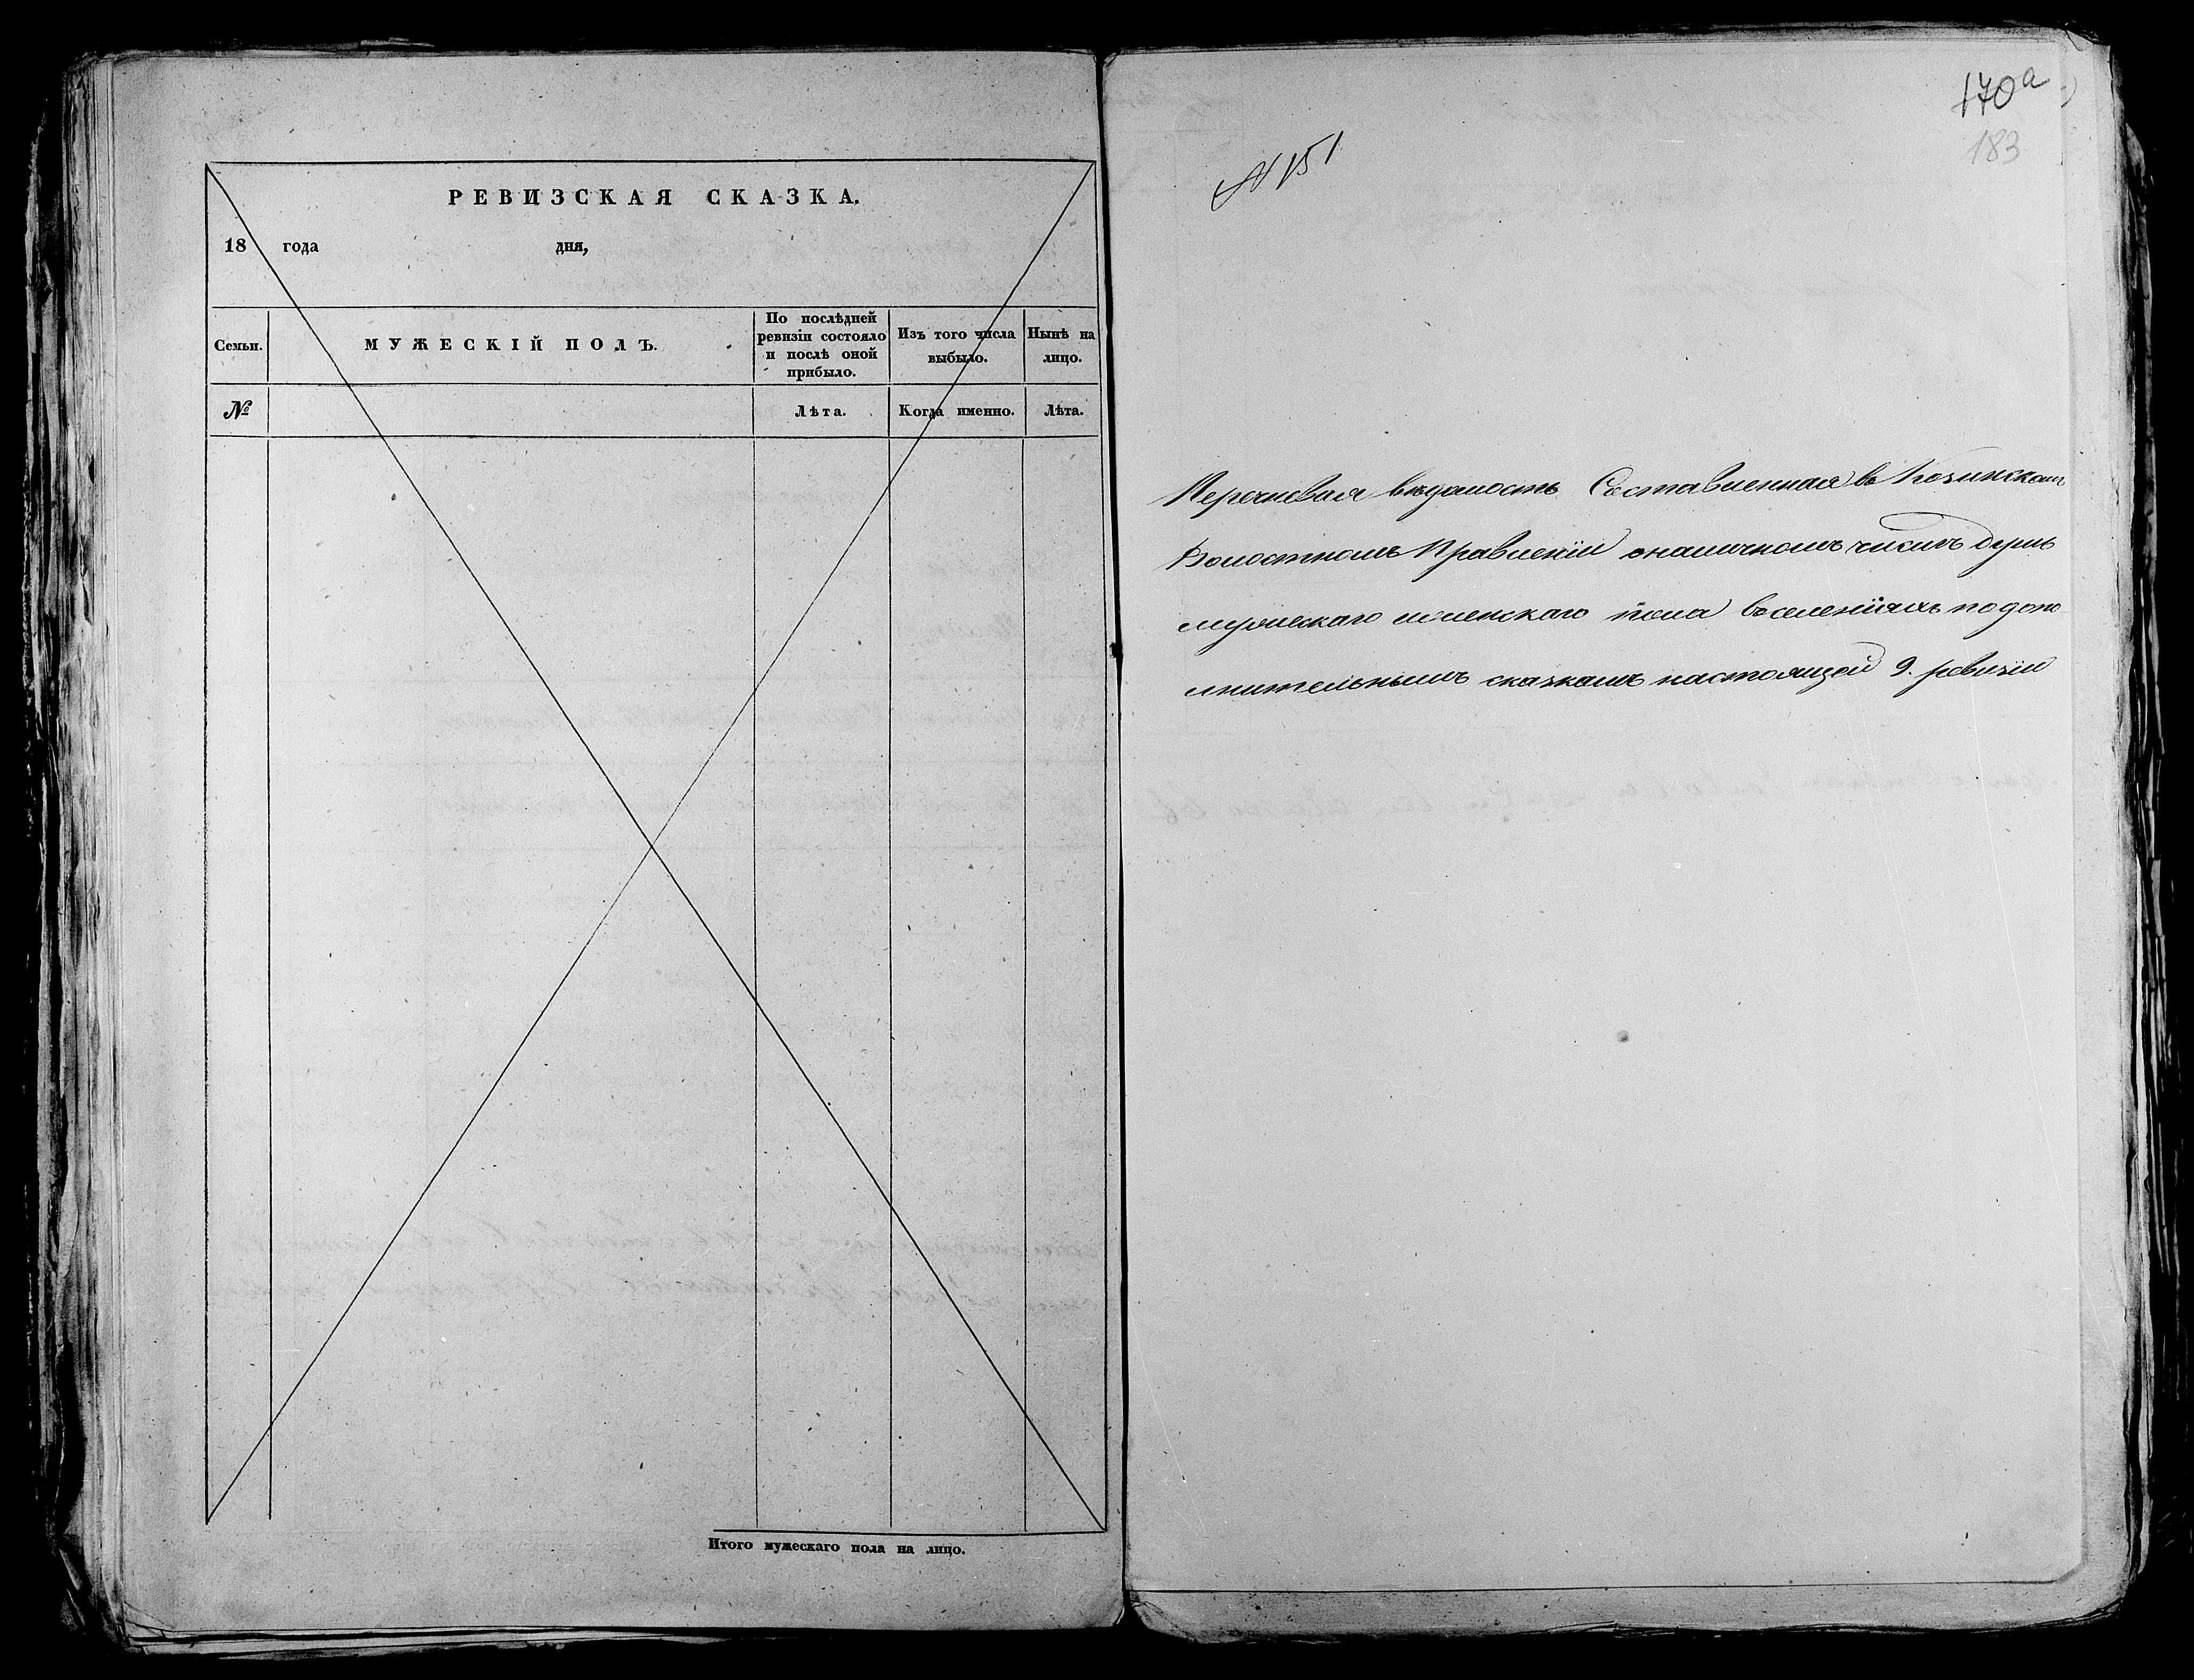 РЕВИЗСКАЯ СКАЗКА.
18 года дня,
Семьи.
МУЖЕСКІЙ ПОЛЪ.
По послѣдней
ревизіи состояло
и послѣ оной
прибыло.
Изъ того числа
выбыло.
Нынѣ на
лицо.
№
Лѣта.
Когда именно.
Лѣта.
Итого мужескаго пола на лицо.
170а
183
№ 151
Перечневая вѣдомость Составленная въ
Волостномъ Правленіи оналичномъ числѣ душъ
мужескаго иженскаго пола воселеніяхъ подопо
лнительнымъ сказкамъ настоящей 9. ревизіи